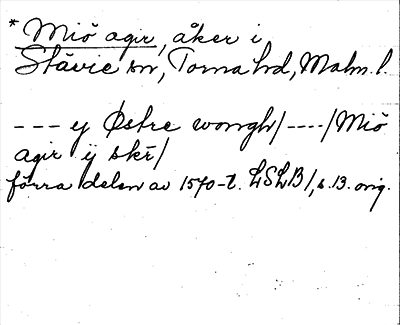 * Miö agir, åker i
Stävie sn, Torna hd, Malm. l.
--- ÿ Östre wongh/----/Miö
agir ÿ skr̄/
förra delen av 1570-t. LSLB/, s. 13. orig.